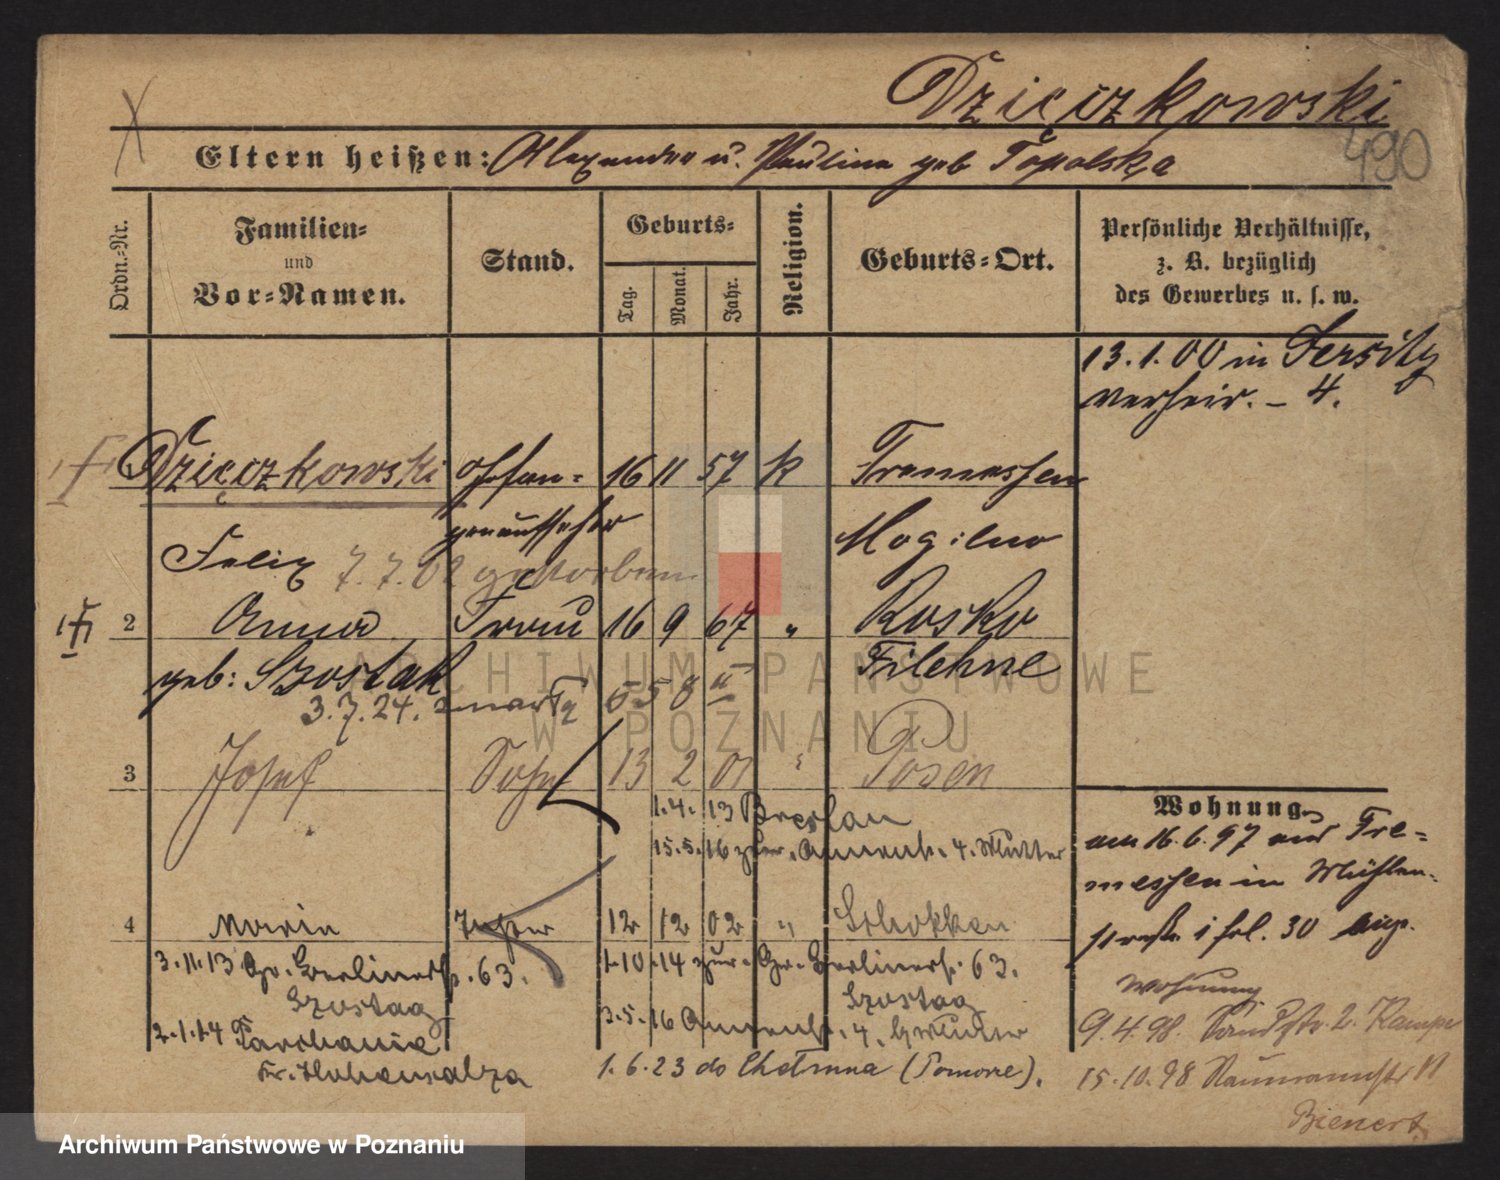 Dzięczkowski
490
Eltern heißen: Alexander u. Paulina geb Topolska
Ordn.-Nr.
Familien-
und
Vor-Namen.
Stand.
Geburts-
Tag.
Monat.
Jahr.
Religion.
Geburts-Ort.
Persönliche Verhältnisse,
z. B. bezüglich
des Gewerbes u. s. w.
13. 1. 00 in Jersitz
verheir. - 4.
Dzięczkowski Gefan- 16 11 57 k Tremessen
genaufseher Mogilno
Felix 7. 7. 02 gestorben
2 Anna Frau 16 9 67 " Rosko
geb: Szostak Filehne
3. 7. 24. zmarła
3 Josef Sohn 13 2 01 " Posen
1. 4. 13 Breslau
15. 5. 16 zur. Annenstr. 4. Mutter
4 Maria Tochter 12 12 02 " Schokken
3. 11. 13 Gr. Berlinerstr. 63.
Szostag
2. 1. 14
Kr. Hohensalza
1. 10. 14 zur. Gr. Berlinerstr. 63.
Szostag
3. 5. 16 Annenstr. 4. Mutter
1. 6. 23 do Chełmna (Pomorze).
Wohnung
am 16. 6. 97 aus Tre-
messen in Mühlen-
straße 1 bei
Wohnung
9. 4. 98. Sandstr. 2.
15. 10. 98 Naumannstr 11
Bienert
ARCHIWUM PAŃSTWOWE
W POZNANIU
Archiwum Państwowe w Poznaniu